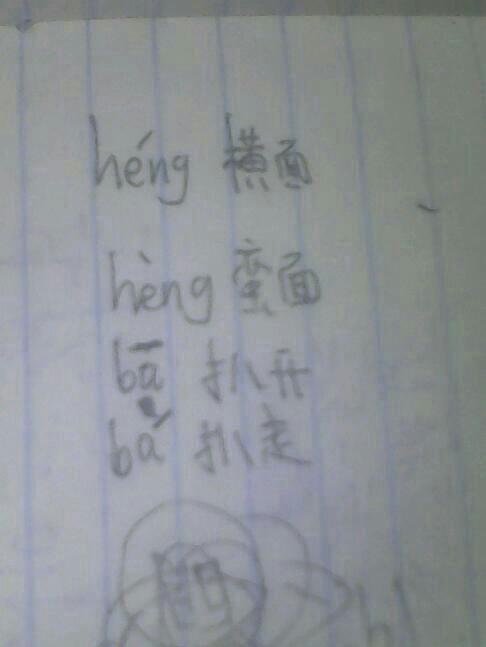 héng 横面
hèng 蛮面
bā 扒开
bá 扒走